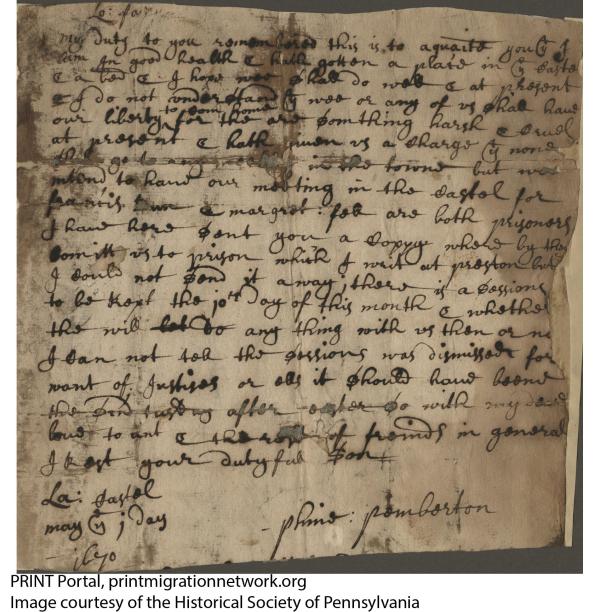 Lo: fa
my duty to you remembred this is to aquaite you yt I
am In good health & hath gotten a place in ye Castel
& a bed &. I hope wee shall do well & at present
& I do not understand yt wee or any of us shal have
our liberty to Com home for the are somthing harsh & Cruel
at present & hath given us a Charge yt none
go to any in the towne but wee
intend to have our meeting in the Castel for
francis & margret: feb are both prisoners
I have here sent you a Coppy where by they
Comitt us to prison which I writ at preston but
I Could not send it away, there is a Sessions
to be kept the 10th Day of this month & whether
the will do any thing with us then or no
I Can not tel the sessions was dismissed for
want of Justises or els it should have beene
the after easter so with my deare
love to ant & the rest of freinds in general
I Rest your dutyful Son
La: Castel
may ye j day
1670
phine: pemberton
PRINT Portal, printmigrationnetwork.org
Image courtesy of the Historical Society of Pennsylvania